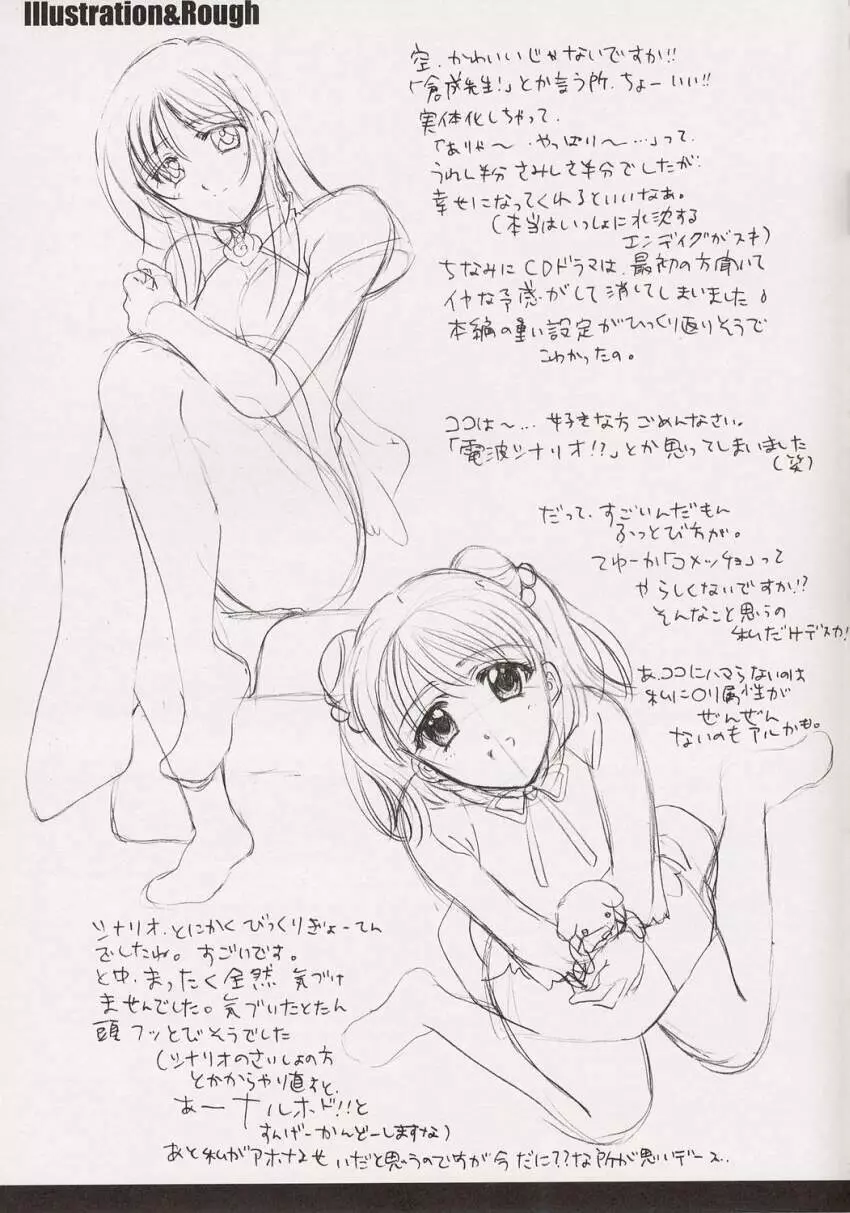 Illustration&Rough
空、かわいいじゃないですか!!
「倉成先生!」とか言う所、ちょーいい!!
実体化しちゃって、
「ありゃ〜、やっぱり〜…」って
うれし半分 さみしさ半分でしたが、
幸せになってくれるといいなぁ。
(本当はいっしょに水沈する
エンディグがスキ)
ちなみに CDドラマは、最初の方聞いて
イヤな予感がして消してしまいました。
本編の重い設定がひっくり返りそうで
こわかったの。
ココは〜… 好きな方ごめんなさい。
「電波シナリオ!?」とか思ってしまいました
(笑)
だって、すごいんだもん
ふっとび方が。
てゆーか「コメッチョ」って
やらしくないですか!?
そんなこと思うの
私だけデスカ!
あ、ココにハマらないのは
私に〇リ属性が
ぜんぜん
ないのもアルかも。
シナリオ、とにかくびっくりぎょーてん
でしたね。すごいです。
と中、まったく全然 気づけ
ませんでした。気づいたとたん
頭フッとびそうでした
(シナリオのさいしょの方
とかからやり直すと、
あーナルホド!!と
すんげーかんどーしますな)
あと私がアホなせいだと思うのですが今だに??な所が思いデース..